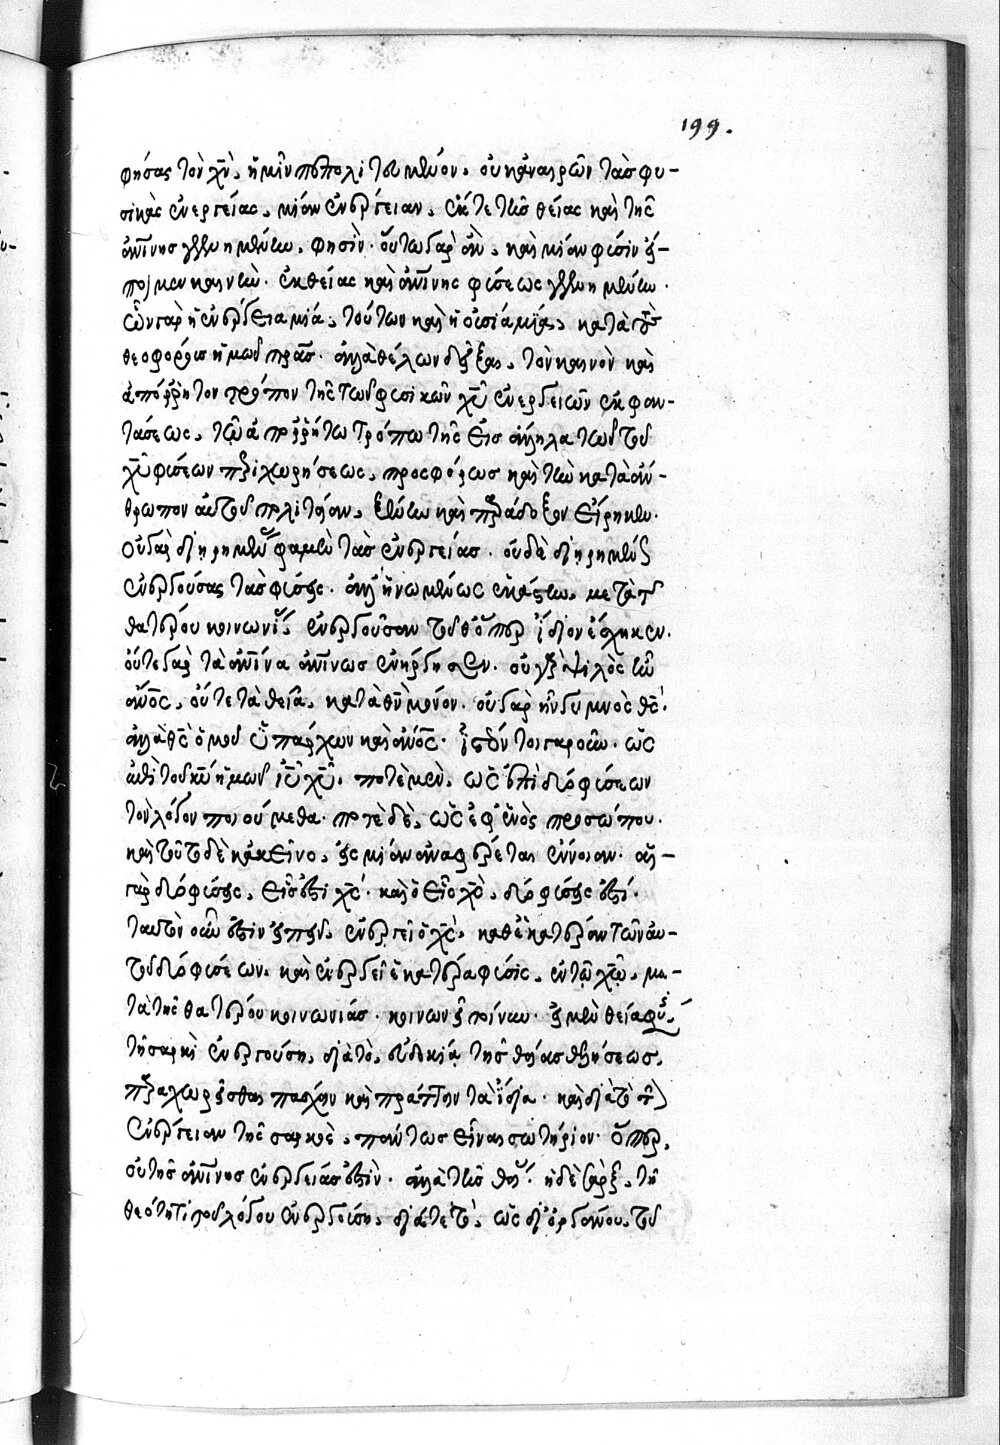 199.
φήσας τὸν χν̅, ἡμῖν πεπολιτευμένον. οὐκ ἀναιρῶν τὰς φυ-
σικὰς ἐνεργείας. μίαν ἐνέργειαν, ἔκ τε τῆς θείας καὶ τῆς
ἀν̅ίνης γεγενημένην, φησίν. οὕτω γὰρ ἂν, καὶ μίαν φύσιν
καινὴν. ἐκ θείας καὶ ἀν̅ίνης φύσεως γεγενημένην.
ὧν γὰρ ἡ ἐνέργεια μία, τούτων καὶ ἡ οὐσία μία, κατὰ τοὺς
θεοφόρους ἡμῶν πρ̅ας. ἀλλὰ θέλων δεῖξαι, τὸν καινὸν καὶ
ἀπόρρητον τρόπον τῆς τῶν φυσικῶν χυ̅ ἐνεργειῶν ἐκφαν-
τάσεως, τῶ ἀπορρήτω τρόπω τῆς εἰς ἄλληλα τῶν τοῦ
χυ̅ φύσεων περιχωρήσεως, προσφόρως καὶ τὴν κατὰ ἄν-
θρωπον αὐτοῦ πολιτείαν, ξένην καὶ παράδοξον εἴρηκεν.
οὐδὲ διῃρημένας φαμὲν τὰς ἐνεργείας. οὐδὲ διῃρημένως
ἐνεργούσας τὰς φύσεις. ἀλλ' ἡνωμένως ἑκάστην, μετὰ τῆς
θατέρου κοινωνίας, ἐνεργοῦσαν τοῦθ' ὅπερ ἴδιον ἔσχηκεν.
οὔτε γὰρ τὰ ἀν̅ινα ἀν̅ίνως ἐνήργησεν. οὐ γὰρ ψιλὸς ἦν
αν̅ος. οὔτε τὰ θεῖα, κατὰ θν̅ μόνον. οὐ γὰρ ἦν γυμνὸς θς̅.
ἀλλὰ θς̅ ὁμοῦ ὑπάρχων καὶ αν̅ος. ἰστέον τοιγαροῦν, ὡς
ἐπὶ τοῦ κυ̅ ἡμῶν ιυ̅ χυ̅, ποτὲ μὲν, ὡς ἐπὶ δύο φύσεων
τὸν λόγον ποιούμεθα. ποτὲ δὲ, ὡς ἐφ' ἑνὸς προσώπου.
καὶ τοῦτο δὲ κἀκεῖνο, εἰς μίαν ἀναφέρεται ἔννοιαν. αἱ
γὰρ δύο φύσεις, εἷς ἐστι χς̅. καὶ ὁ εἷς χς̅, δύο φύσεις ἐστί.
ταυτὸν οὖν ἐστιν εἰπεῖν, ἐνεργεῖ ὁ χς̅, καθ' ἑκατέραν τῶν αὐ-
τοῦ δύο φύσεων. καὶ ἐνεργεῖ ἑκατέρα φύσις, ἐν τῶ χω̅, με-
τὰ τῆς θατέρου κοινωνίας. κοινωνεῖ τοίνυν, ἡ μὲν θεία φύσις
τῆ σαρκὶ ἐνεργούση, διὰ τὸ, εὐδοκία τῆς θείας θελήσεως,
παραχωρεῖσθαι πάσχειν καὶ πράττειν τὰ ἴδια. καὶ διὰ τὸ τὴν
ἐνέργειαν τῆς σαρκὸς, πάντως εἶναι σωτήριον. ὅπερ,
οὐ τῆς ἀν̅ίνης ἐνεργείας ἐστὶν. ἀλλὰ τῆς θείας. ἡ δὲ σὰρξ, τῆ
θεότητι τοῦ λόγου ἐνεργούση, διά τε τὸ, ὡς δι' ὀργάνου, τοῦ